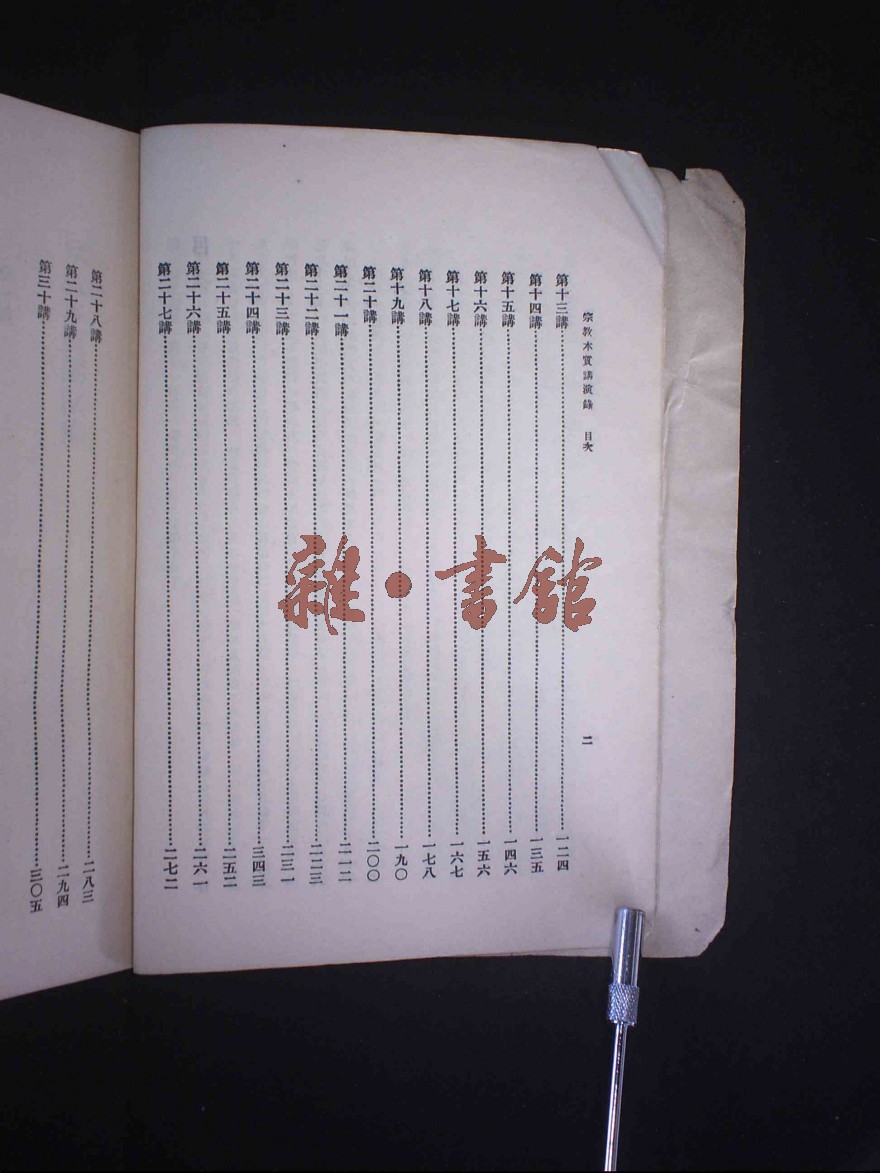 宗教本質講演錄 目次 二
第十三講 一二四
第十四講 一三五
第十五講 一四六
第十六講 一五六
第十七講 一六七
第十八講 一七八
第十九講 一九〇
第二十講 二〇〇
第二十一講 二一二
第二十二講 二二三
第二十三講 二三一
第二十四講 三四三
第二十五講 二五二
第二十六講 二六一
第二十七講 二七二
第二十八講 二八三
第二十九講 二九四
第三十講 三〇五
雜·書館